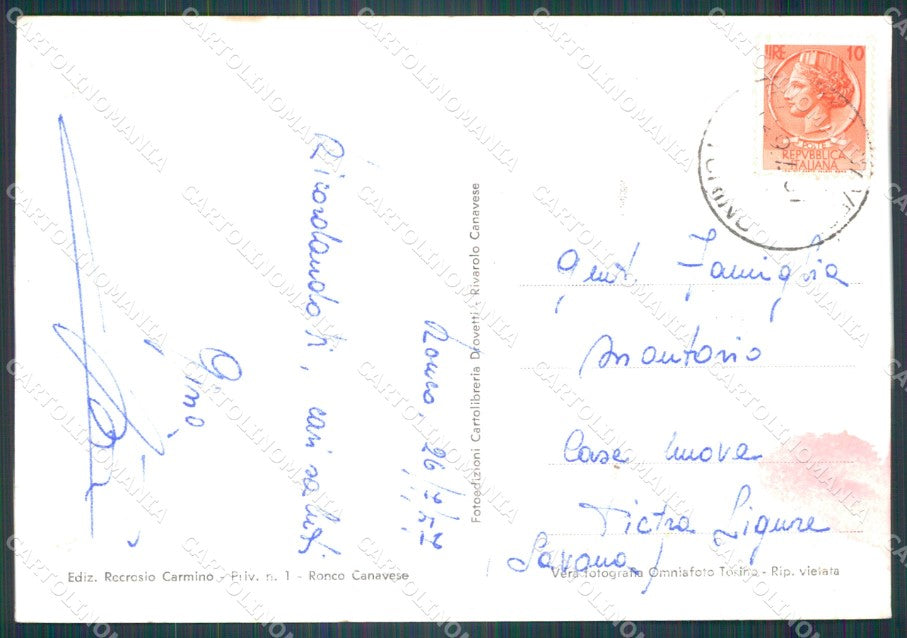 LIRE 10
POSTE
REPVBBLICA
ITALIANA
Ronco, 26/7/57
Ricordandoti, cari saluti
Gino
Gent. Famiglia
Montorio
Case nuove
Pietra Ligure
(Savona)
Fotoedizioni Cartolibreria Drovetti - Rivarolo Canavese
Ediz. Recrosio Carmino - Priv. n. 1 - Ronco Canavese
Vera fotografia Omniafoto Torino - Rip. vietata
CARTOLINOMANIA